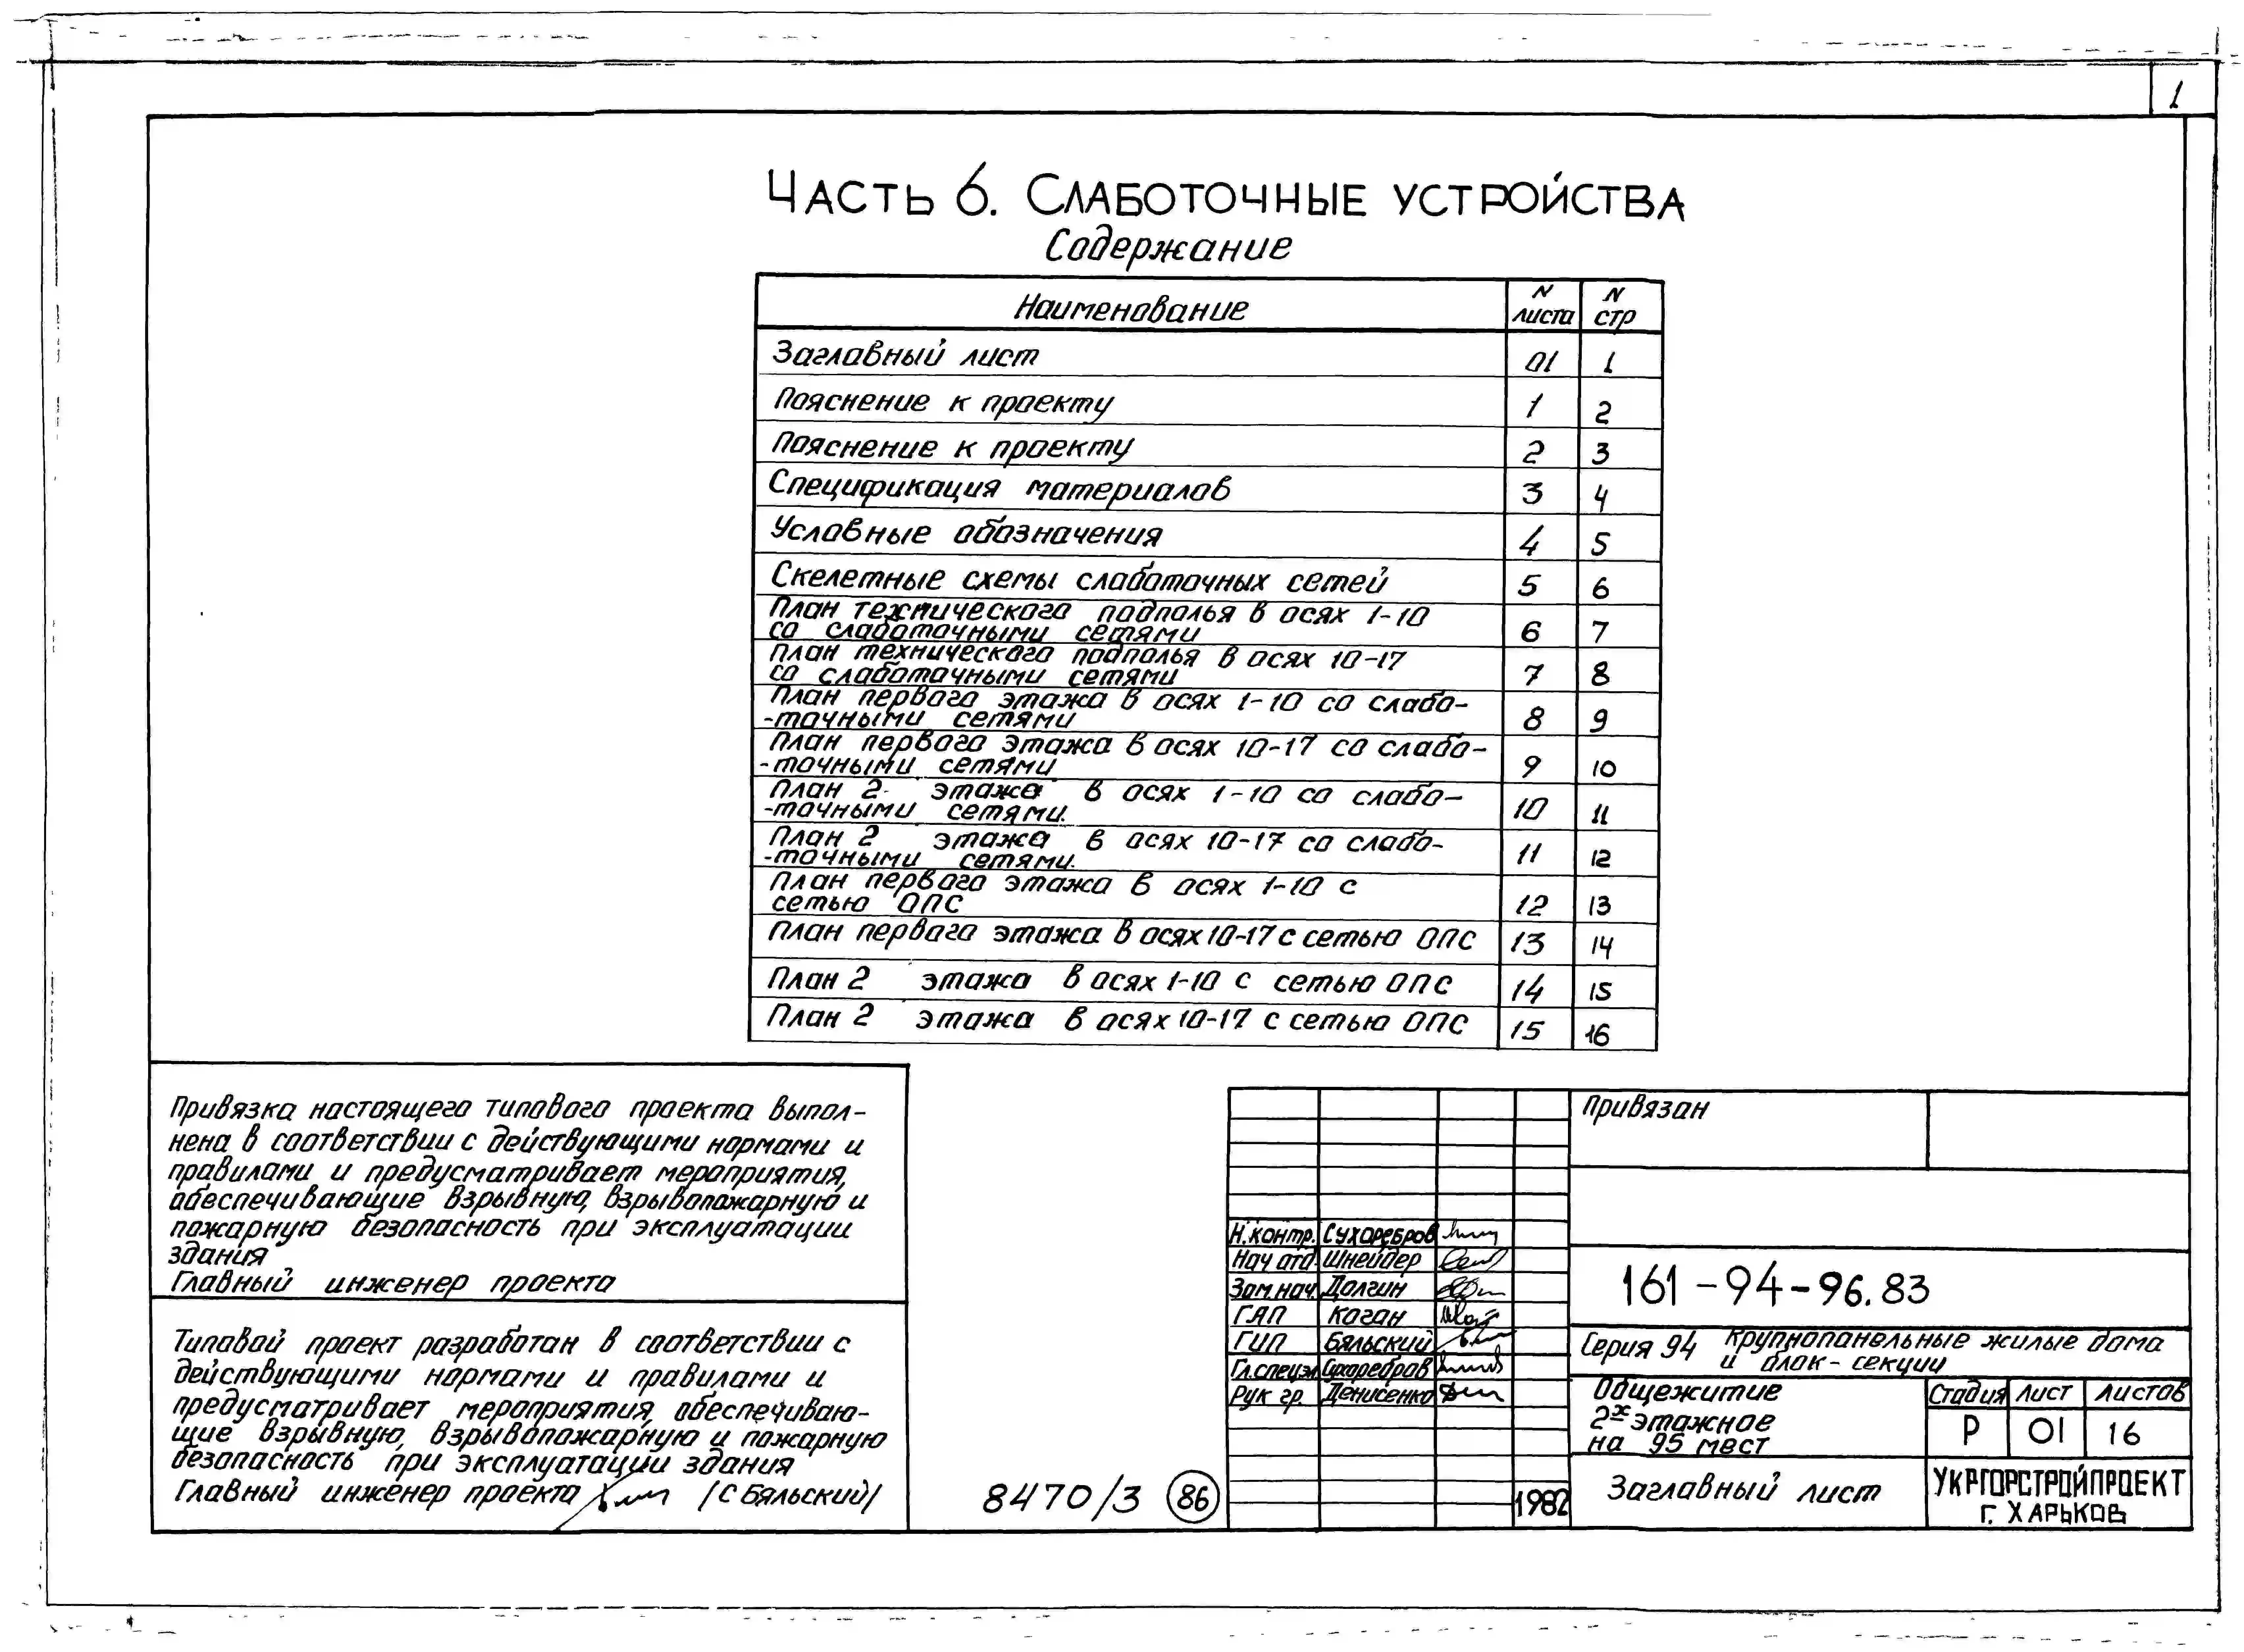 1
Часть 6. Слаботочные устройства
Содержание
Наименование N листа N стр
Заглавный лист 01 1
Пояснение к проекту 1 2
Пояснение к проекту 2 3
Спецификация материалов 3 4
Условные обозначения 4 5
Скелетные схемы слаботочных сетей 5 6
План технического подполья в осях 1-10
со слаботочными сетями 6 7
План технического подполья в осях 10-17
со слаботочными сетями 7 8
План первого этажа в осях 1-10 со слабо-
-точными сетями 8 9
План первого этажа в осях 10-17 со слабо-
-точными сетями 9 10
План 2 этажа в осях 1-10 со слабо-
-точными сетями. 10 11
План 2 этажа в осях 10-17 со слабо-
-точными сетями. 11 12
План первого этажа в осях 1-10 с
сетью ОПС 12 13
План первого этажа в осях 10-17 с сетью ОПС 13 14
План 2 этажа в осях 1-10 с сетью ОПС 14 15
План 2 этажа в осях 10-17 с сетью ОПС 15 16
Привязка настоящего типового проекта выпол-
нена в соответствии с действующими нормами и
правилами и предусматривает мероприятия,
обеспечивающие взрывную, взрывопожарную и
пожарную безопасность при эксплуатации
здания
Главный инженер проекта
Типовой проект разработан в соответствии с
действующими нормами и правилами и
предусматривает мероприятия, обеспечиваю-
щие взрывную, взрывопожарную и пожарную
безопасность при эксплуатации здания
Главный инженер проекта /С Бяльский/
8470/3 86
Н.контр. Сухоребров
Нач отд Шнейдер
Зам.нач. Долгин
ГАП Коган
ГИП Бяльский
Гл.спецэл Сухоребров
Рук гр. Денисенко
1982
Привязан
161-94-96.83
Серия 94 Крупнопанельные жилые дома
и блок-секции
Общежитие
2х этажное
на 95 мест
Стадия Лист Листов
Р 01 16
Заглавный лист
УКРГОРСТРОЙПРОЕКТ
г. ХАРЬКОВ